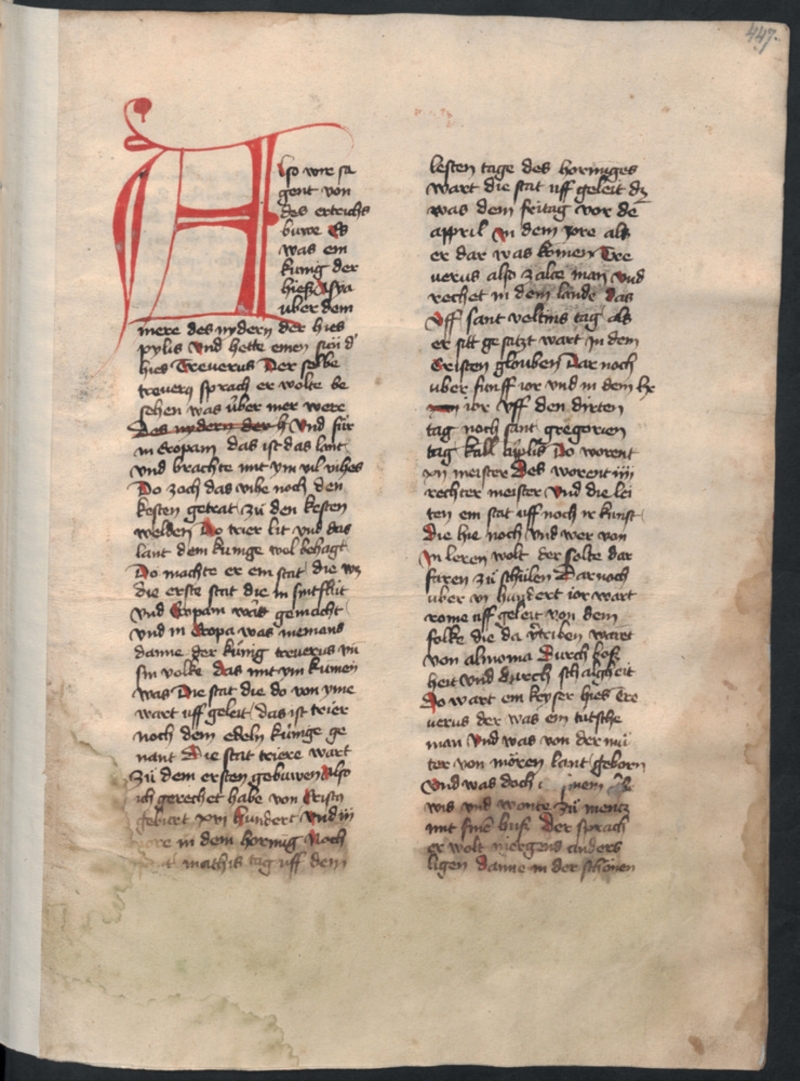 447.
Also wre sa
gent von
des ertrichs
buwe Es
was ein
kunig der
hieß Asya
uber dem
mere des nydern der hies
pylis Vnd hette einen sun d'
hies Treuerus Der selbe
treuerꝰ sprach er wolte be
sehen was über mer were
Des nydern der h Vnd für
in Eropam das ist das lant
vnd brachte mit ym vil vihes
Do zoch das vihe noch den
kesten getrat zü den kesten
welden Do trier lit vnd das
lant dem kunige wol behagt
Do machte er ein stat die wz
die erste stat die in sintflüt
vnd Eropam was gemacht
vnd in Eropa was niemans
danne der künig treuerus
sin volke das mit ym kumen
was Die stat die do von yme
wart uff geleit das ist trier
noch dem edeln künige ge
nant Die stat triere wart
Zü dem ersten gebuwen Also
ich gerechet habe von Cristꝯ
geburt xvi hundert vnd iii
iore in dem hornūg Noch
mathis tag uff dem
lesten tage des hornūges
wart die stat uff geleit dz
was dem fritag vor dē
appril In dem Jore als
er dar was komen Tre
uerus also zalte man vnd
rechet in dem lande das
Vff sant veltins tag als
er sitt gesatzt wart In dem
Cristen glouben Dar noch
uber funff ior vnd in dem
ior Vff den dirten
tag noch sant gregorien
tag kall aprilis Do worent
xii meister Des worent iiii
rechter meister Vnd die lei
ten ein stat uff noch ir kunst
Die hie noch vnd wer von
In leren wolt der solte dar
faren zü schülen Dar noch
uber vi hundert ior wart
rome uff geleit von dem
folke die da v̓triben waret
von almonia Durch boß
heit vnd durch schalgheit
Do wart ein keyser hies Tre
uerus der was ein tutsche
man Vnd was von der mü
ter von mören lant geborn
Vnd was doch
wis vnd wonte Zü mentz
mit sinē huß Der sprach
er wolt niergens anders
ligen danne in der schönen